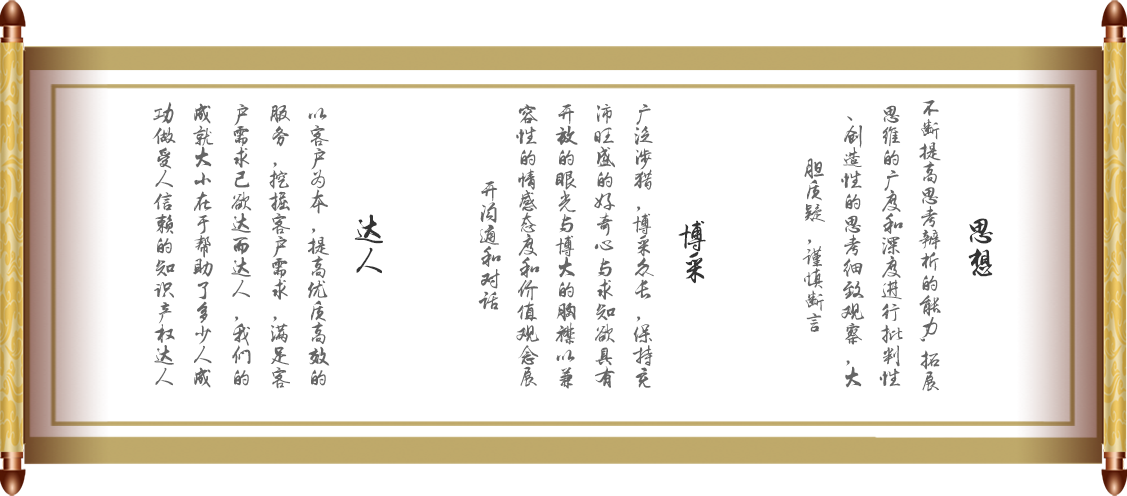 思想
不断提高思考辨析的能力、拓展
思维的广度和深度进行批判性
、创造性的思考细致观察，大
胆质疑，谨慎断言
博采
广泛涉猎，博采众长，保持充
沛旺盛的好奇心与求知欲具有
开放的眼光与博大的胸襟以兼
容性的情感态度和价值观念展
开沟通和对话
达人
以客户为本，提高优质高效的
服务，挖掘客户需求，满足客
户需求己欲达而达人，我们的
成就大小在于帮助了多少人成
功做受人信赖的知识产权达人